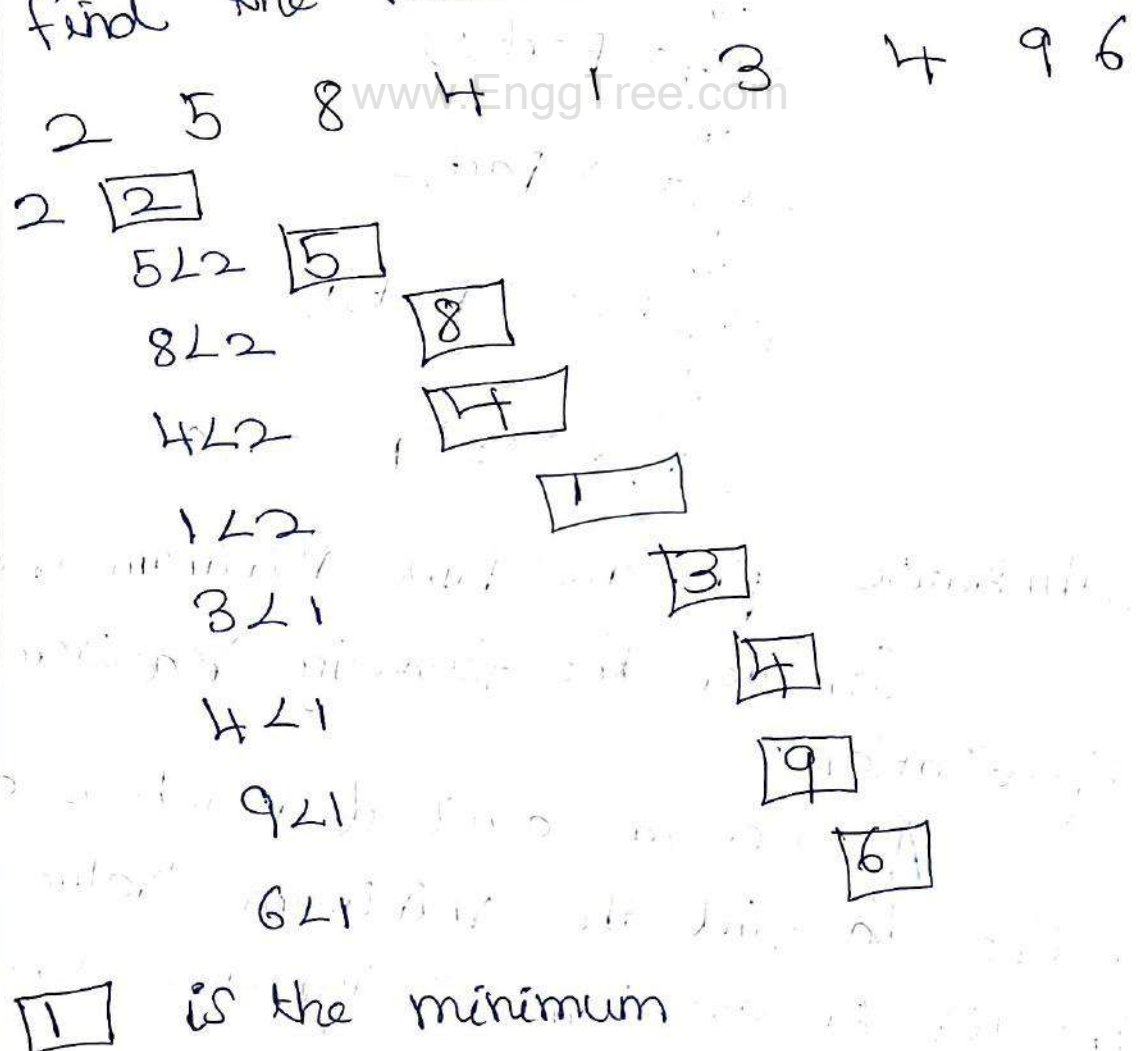 find the
2 5 8 4 1 3 4 9 6
www.EnggTree.com
2 2
5<2 5
8<2 8
4<2 4
1<2 1
3<1 3
4<1 4
9<1 9
6<1 6
1 is the minimum